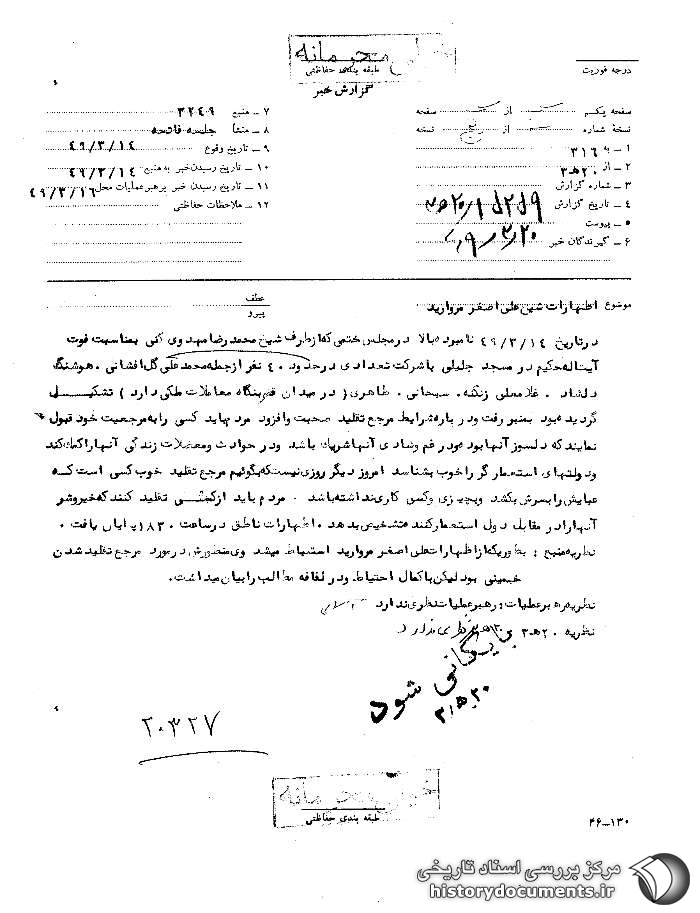 خیلی محرمانه
طبقه بندی حفاظتی
گزارش خبر
درجه فوریت
صفحه یکم از صفحه
نسخه شماره از نسخه
۱ – به ۳۱۶
۲ – از ۲۰ ه‍ ۳
۳ – شماره گزارش
۴ – تاریخ گزارش
۵ – پیوست
۶ – گیرندگان خبر
۷ – منبع ۳۲۴۹
۸ – منشأ جلسه فاتحه
۹ – تاریخ وقوع ۴۹/۳/۱۴
۱۰ – تاریخ رسیدن خبر به منبع ۴۹/۳/۱۴
۱۱ – تاریخ رسیدن خبر برهبر عملیات محل ۴۹/۳/۱۶
۱۲ – ملاحظات حفاظتی
موضوع اظهارات شیخ علی اصغر مروارید
عطف
پیرو
در تاریخ ۴۹/۳/۱۴ نامبرده بالا در مجلس ختمی که از طرف شیخ محمد رضا مهدوی کنی بمناسبت فوت
آیت اله حکیم در مسجد جلیلی با شرکت تعدادی در حدود ۴۰۰ نفر از جمله محمد علی گل افشانی . هوشنگ
دلشاد . غلامعلی زنگنه . سبحانی . طاهری ( در میدان قم بنگاه معاملات ملکی دارد ) تشکیل
گردیده بود بمنبر رفت و درباره شرایط مرجع تقلید صحبت و افزود مردم باید کسی را به مرجعیت خود قبول
نمایند که دلسوز آنها بوده و در غم و شادی آنها شریک باشد و در حوادث و معضلات زندگی آنها را کمک کند
و دولتهای استعمارگر را خوب بشناسد امروز دیگر روزی نیست که بگوئیم مرجع تقلید خوب کسی است که
عبایش را بسرش بکشد و بچیزی و کسی کاری نداشته باشد . مردم باید از کسی تقلید کنند که خیر و شر
آنها را در مقابل دول استعمار کننده تشخیص بدهد . اظهارات ناطق در ساعت ۱۸۳۰ پایان یافت .
نظریه منبع : بطوریکه از اظهارات علی اصغر مروارید استنباط میشد وی منظورش در مورد مرجع تقلید شدن
خمینی بود لیکن با کمال احتیاط و در لفافه مطالب را بیان میداشت .
نظریه رهبر عملیات : رهبر عملیات نظری ندارد
نظریه ۲۰ ه‍ ۳
بایگانی شود
۲۰۳۲۷
خیلی محرمانه
طبقه بندی حفاظتی
۴۶–۱۳۰
مرکز بررسی اسناد تاریخی
historydocuments.ir